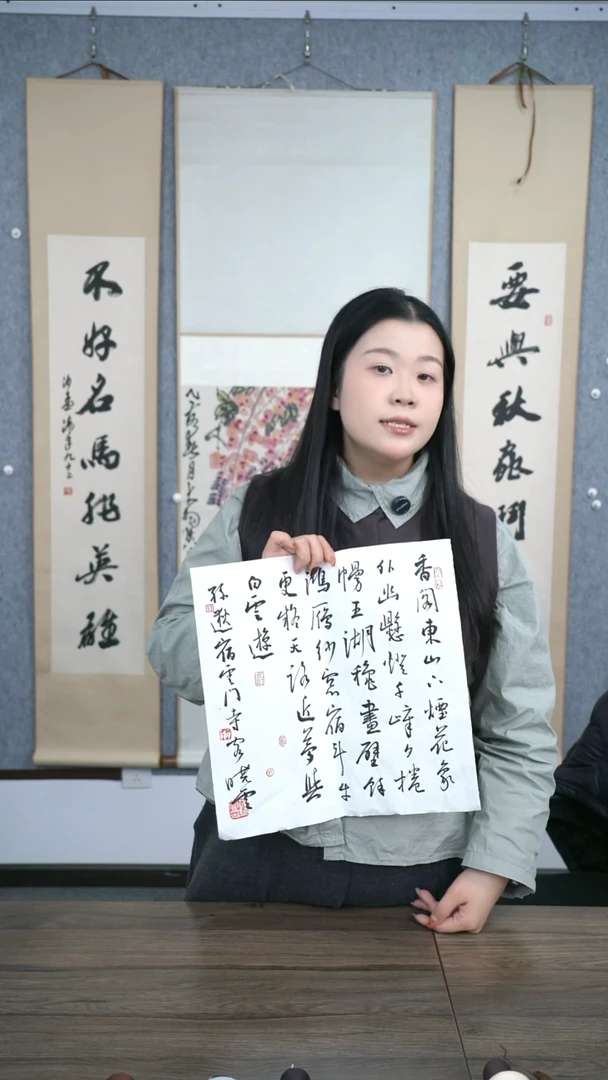 要與秋
不好名馬非英雄
香閣東山下煙花象
外幽懸燈千嶂夕捲
幔五湖穐畫壁餘
鴻雁紗窗宿斗牛
更疑天路近夢與
白雲遊
孫逖宿雲門寺曉雲